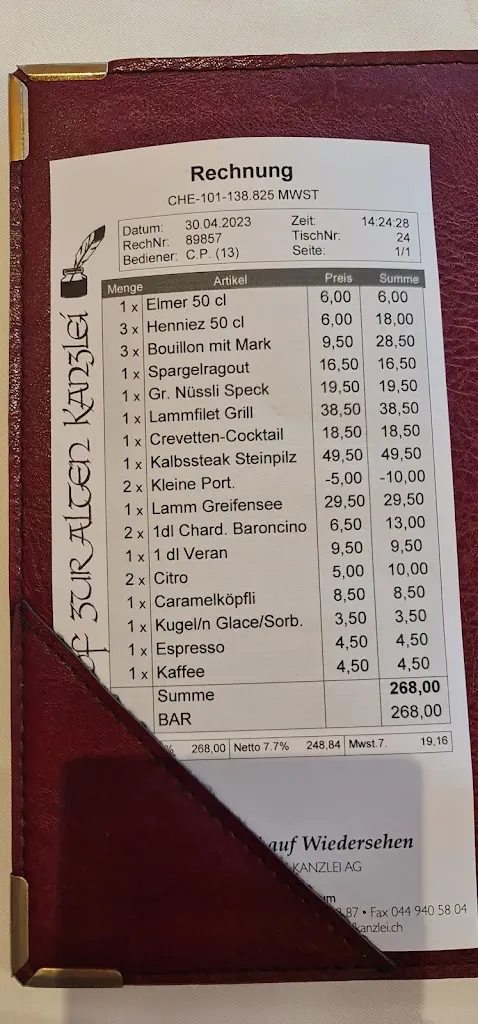 Rechnung
CHE-101-138.825 MWST
Datum: 30.04.2023 Zeit: 14:24:28
RechNr: 89857 TischNr: 24
Bediener: C.P. (13) Seite: 1/1
Menge Artikel Preis Summe
1 x Elmer 50 cl 6,00 6,00
3 x Henniez 50 cl 6,00 18,00
3 x Bouillon mit Mark 9,50 28,50
1 x Spargelragout 16,50 16,50
1 x Gr. Nüssli Speck 19,50 19,50
1 x Lammfilet Grill 38,50 38,50
1 x Crevetten-Cocktail 18,50 18,50
1 x Kalbssteak Steinpilz 49,50 49,50
2 x Kleine Port. -5,00 -10,00
1 x Lamm Greifensee 29,50 29,50
2 x 1dl Chard. Baroncino 6,50 13,00
1 x 1 dl Veran 9,50 9,50
2 x Citro 5,00 10,00
1 x Caramelköpfli 8,50 8,50
1 x Kugel/n Glace/Sorb. 3,50 3,50
1 x Espresso 4,50 4,50
1 x Kaffee 4,50 4,50
Summe 268,00
BAR 268,00
% 268,00 Netto 7.7% 248,84 Mwst.7. 19,16
auf Wiedersehen
KANZLEI AG
87 • Fax 044 940 58 04
kanzlei.ch
ZUR ALTEN KANZLEI